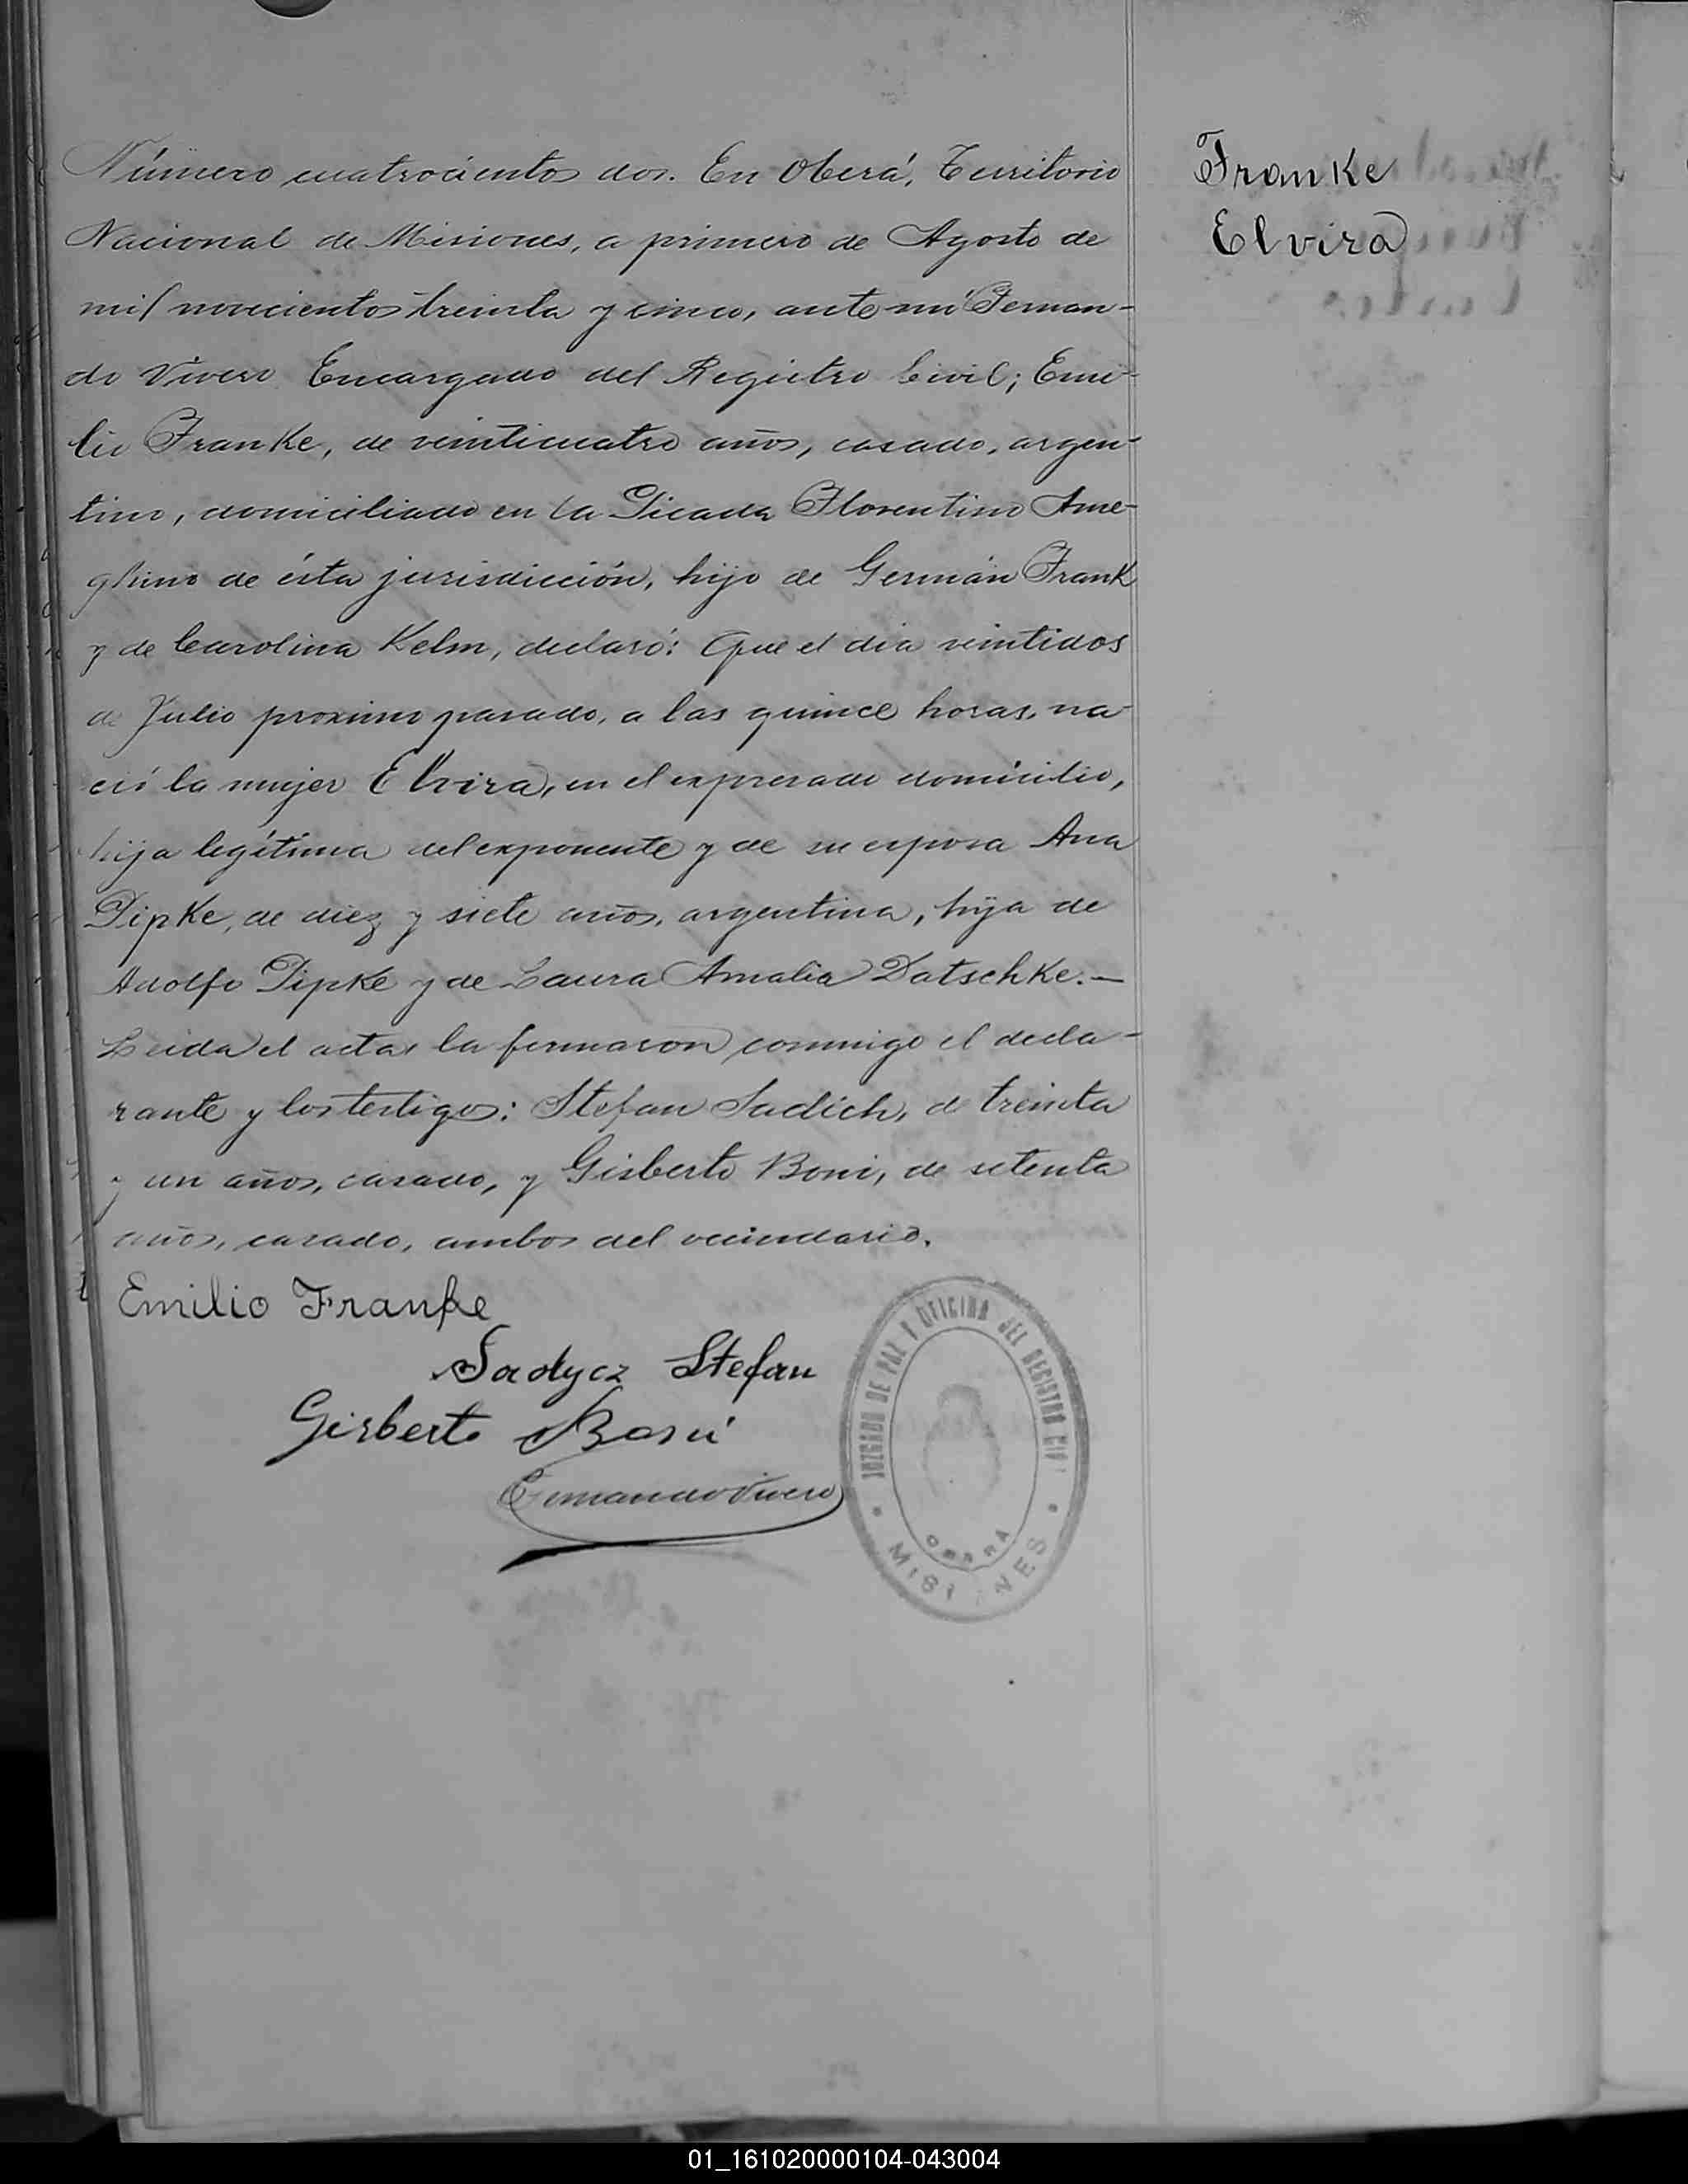 Número cuatrocientos dos. En Oberá, Territorio
Nacional de Misiones, a primero de Agosto de
mil novecientos treinta y cinco, ante mi Fernan-
do Vivero Encargado del Registro Civil; Emi-
lio Franke, de veinticuatro años, casado, argen-
tino, domiciliado en la Picada Florentino Ame-
ghino de ésta jurisdicción, hijo de Germán Frank
y de Carolina Kelm, declaró: Que el dia veintidos
de Julio proximo pasado, a las quince horas, na-
ció la mujer Elvira, en el expresado domicilio,
hija legítima del exponente y de su esposa Ana
Pipke, de diez y siete años, argentina, hija de
Adolfo Pipke y de Laura Amalia Datschke.—
Leida el acta, la firmaron conmigo el decla-
rante y los testigos: Stefan Sadich, de treinta
y un años, casado, y Gisberto Boni, de setenta
años, casado, ambos del vecindario.
Emilio Franke
Sadycz Stefan
Gisberto Boni
Fernando Vivero
JUZGADO DE PAZ Y OFICINA DEL REGISTRO CIV
OBERA
MISIONES
Franke
Elvira
01_161020000104-043004